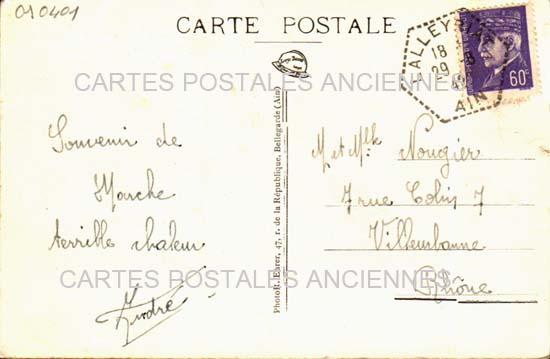 010401
CARTE POSTALE
LALLEYRIAT
18
29
AIN
60c
CARTES POSTALES ANCIENNES
Souvenir de
Marche
terrible chaleur
André
Photo R. Ehrer, 47, r. de la République, Bellegarde (Ain)
M et Mlle Nougier
7 rue Colin 7
Villeurbanne
Rhône
CARTES POSTALES ANCIENNES